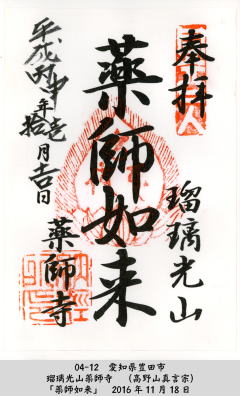 奉拝
瑠璃光山
薬師如来
薬師寺
平成丙申年拾壱月吉日
04-12　愛知県豊田市
瑠璃光山薬師寺　（高野山真言宗）
「薬師如来」　2016年11月18日